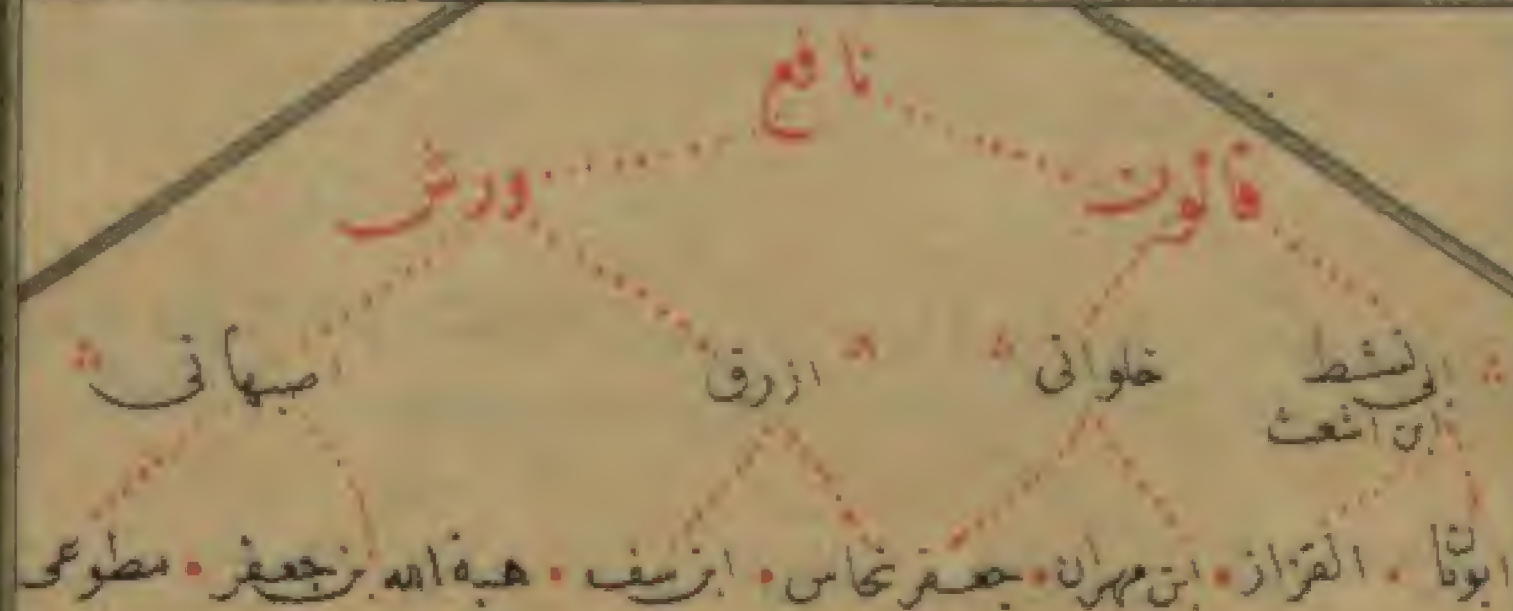 نافع
قالون ورش
ابى نشط خلوانى ازرق اصبهانى
ابن اشعث
القزاز ابن مهران جعفر نحاس ابن سيف هبة الله بن جعفر مطوعى